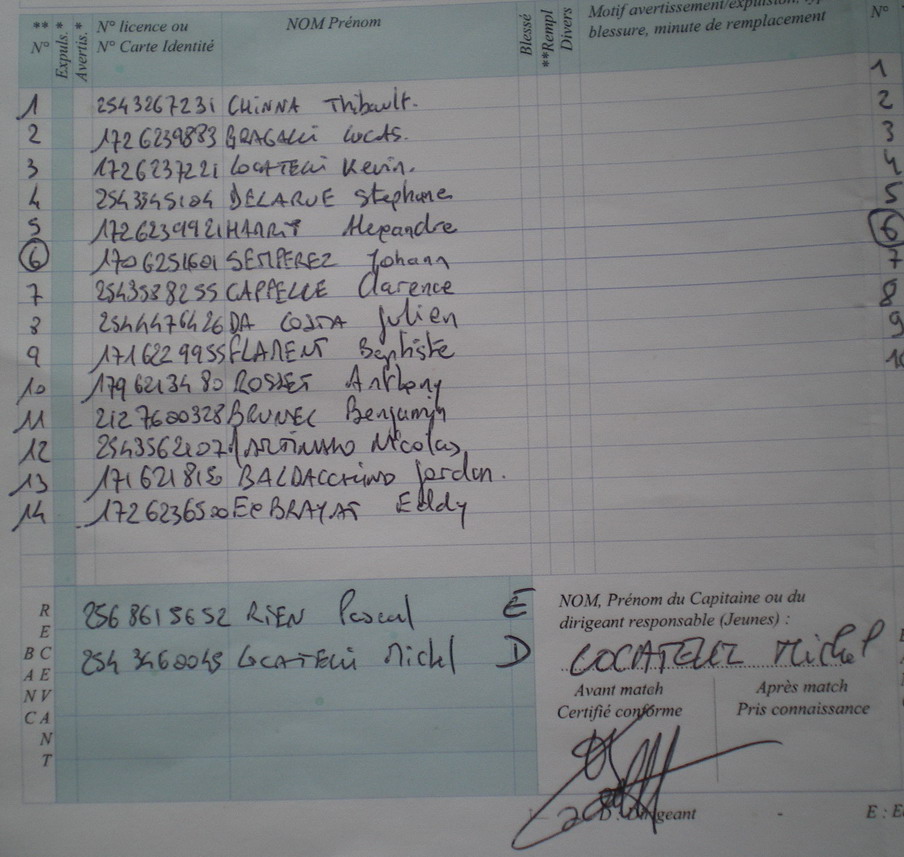 ** * * N° licence ou NOM Prénom Motif avertissement/expulsion, N°
N° Expuls. Avertis. N° Carte Identité Blessé **Rempl Divers blessure, minute de remplacement
1
1 2543267231 CHINNA Thibault. 2
2 1726239883 BRAGALLI LUCAS. 3
3 1726237221 LOCATELLI Kevin. 4
4 2543345104 DELARUE Stephane 5
5 1726239921 Alexandre 6
6 1706251601 SEMPEREZ Johann 7
7 2543538255 CAPPELLE Clarence 8
8 2544476426 DA COSTA Julien 9
9 1716229955 FLARENT Baptiste 10
10 1796213480 ROSSET Anthony
11 2127600328 BRUNEL Benjamin
12 2543562107 MARTINHO Nicolas
13 171621815 BALDACCHINO Jordan.
14 1726236500 EL BRAYAT Eddy
BANC RECEVANT
2568615652 RIEN Pascal E
2543460045 LOCATELLI Michel D
NOM, Prénom du Capitaine ou du
dirigeant responsable (Jeunes) :
LOCATELLI Michel
Avant match Après match
Certifié conforme Pris connaissance
D : Dirigeant - E :